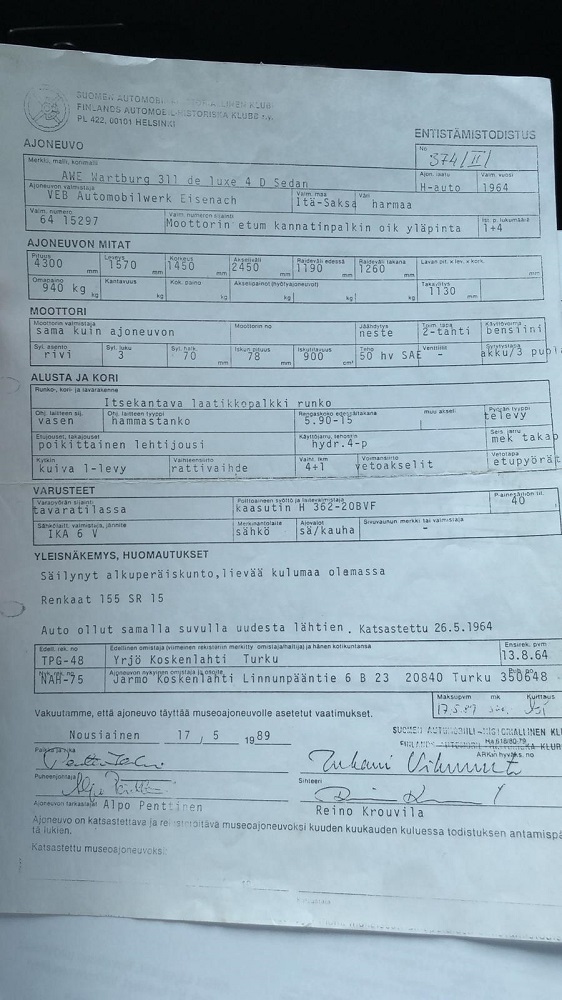 SUOMEN AUTOMOBIILI-HISTORIALLINEN KLUBI
FINLANDS AUTOMOBIL-HISTORISKA KLUBB r.y.
PL 422, 00101 HELSINKI
ENTISTÄMISTODISTUS
AJONEUVO
No
374/II/
Merkki, malli, korimalli
AWE Wartburg 311 de luxe 4 D Sedan
Ajon. laatu Valm. vuosi
H-auto 1964
Ajoneuvon valmistaja Valm. maa Väri
VEB Automobilwerk Eisenach Itä-Saksa harmaa
Valm. numero Valm. numeron sijainti Hlö p. lukumäärä
64 15297 Moottorin etum kannatinpalkin oik yläpinta 1+4
AJONEUVON MITAT
Pituus Leveys Korkeus Akseliväli Raideväli edessä Raideväli takana Lavan pit. x lev. x kork.
4300 mm 1570 mm 1450 mm 2450 mm 1190 mm 1260 mm mm
Omapaino Kantavuus Kok. paino Akselipainot (hyötyajoneuvot) Takaylitys
940 kg kg kg kg kg kg 1130 mm
MOOTTORI
Moottorin valmistaja Moottorin no Jäähdytys Toim. tapa Käyttövoima
sama kuin ajoneuvon neste 2-tahti bensiini
Syl. asento Syl. luku Syl. halk. Iskun pituus Iskutilavuus Teho Venttiilit Sytytystapa
rivi 3 70 mm 78 mm 900 cm³ 50 hv SAE - akku/3 puol
ALUSTA JA KORI
Runko-, kori- ja lavarakenne
Itsekantava laatikkopalkki runko
Ohj. laitteen sij. Ohj. laitteen tyyppi Rengaskoko edessä/takana muu akseli Pyörän tyyppi
vasen hammastanko 5.90-15 televy
Etujouset, takajouset Käyttöjarru, tehostin Seis. jarru
poikittainen lehtijousi hydr.4-p mek takap
Kytkin Vaihteensiirto Vaiht. lkm Voimansiirto Vetotapa
kuiva 1-levy rattivaihde 4+1 vetoakselit etupyörät
VARUSTEET
Varapyörän sijainti Polttoaineen syöttö ja laitevalmistaja P-ainesäiliön til.
tavaratilassa kaasutin H 362-20BVF 40
Sähkölaitt. valmistaja, jännite Merkinantolaite Ajovalot Sivuvaunun merkki tai valmistaja
IKA 6 V sähkö sä/kauha -
YLEISNÄKEMYS, HUOMAUTUKSET
Säilynyt alkuperäiskunto,lievää kulumaa olemassa
Renkaat 155 SR 15
Auto ollut samalla suvulla uudesta lähtien. Katsastettu 26.5.1964
Edell. rek. no Edellinen omistaja (viimeinen rekisteriin merkitty omistaja/haltija) ja hänen kotikuntansa Ensirek. pvm
TPG-48 Yrjö Koskenlahti Turku 13.8.64
Nyk. rek. no Ajoneuvon nykyinen omistaja ja osoite Puh. no
NAH-75 Jarmo Koskenlahti Linnunpääntie 6 B 23 20840 Turku 350648
Maksupvm mk Kuittaus
17.5.89
Vakuutamme, että ajoneuvo täyttää museoajoneuvolle asetetut vaatimukset.
Nousiainen 17 / 5 1989
SUOMEN AUTOMOBIILI-HISTORIALLINEN KLU
FINLANDS AUTOMOBIL-HISTORISKA KLUBB
Paikka ja aika ARKin hyväks. no
Puheenjohtaja Sihteeri
Ajoneuvon tarkastajat Alpo Penttinen Reino Krouvila
Ajoneuvo on katsastettava ja rekisteröitävä museoajoneuvoksi kuuden kuukauden kuluessa todistuksen antamispä
tä lukien.
Katsastettu museoajoneuvoksi